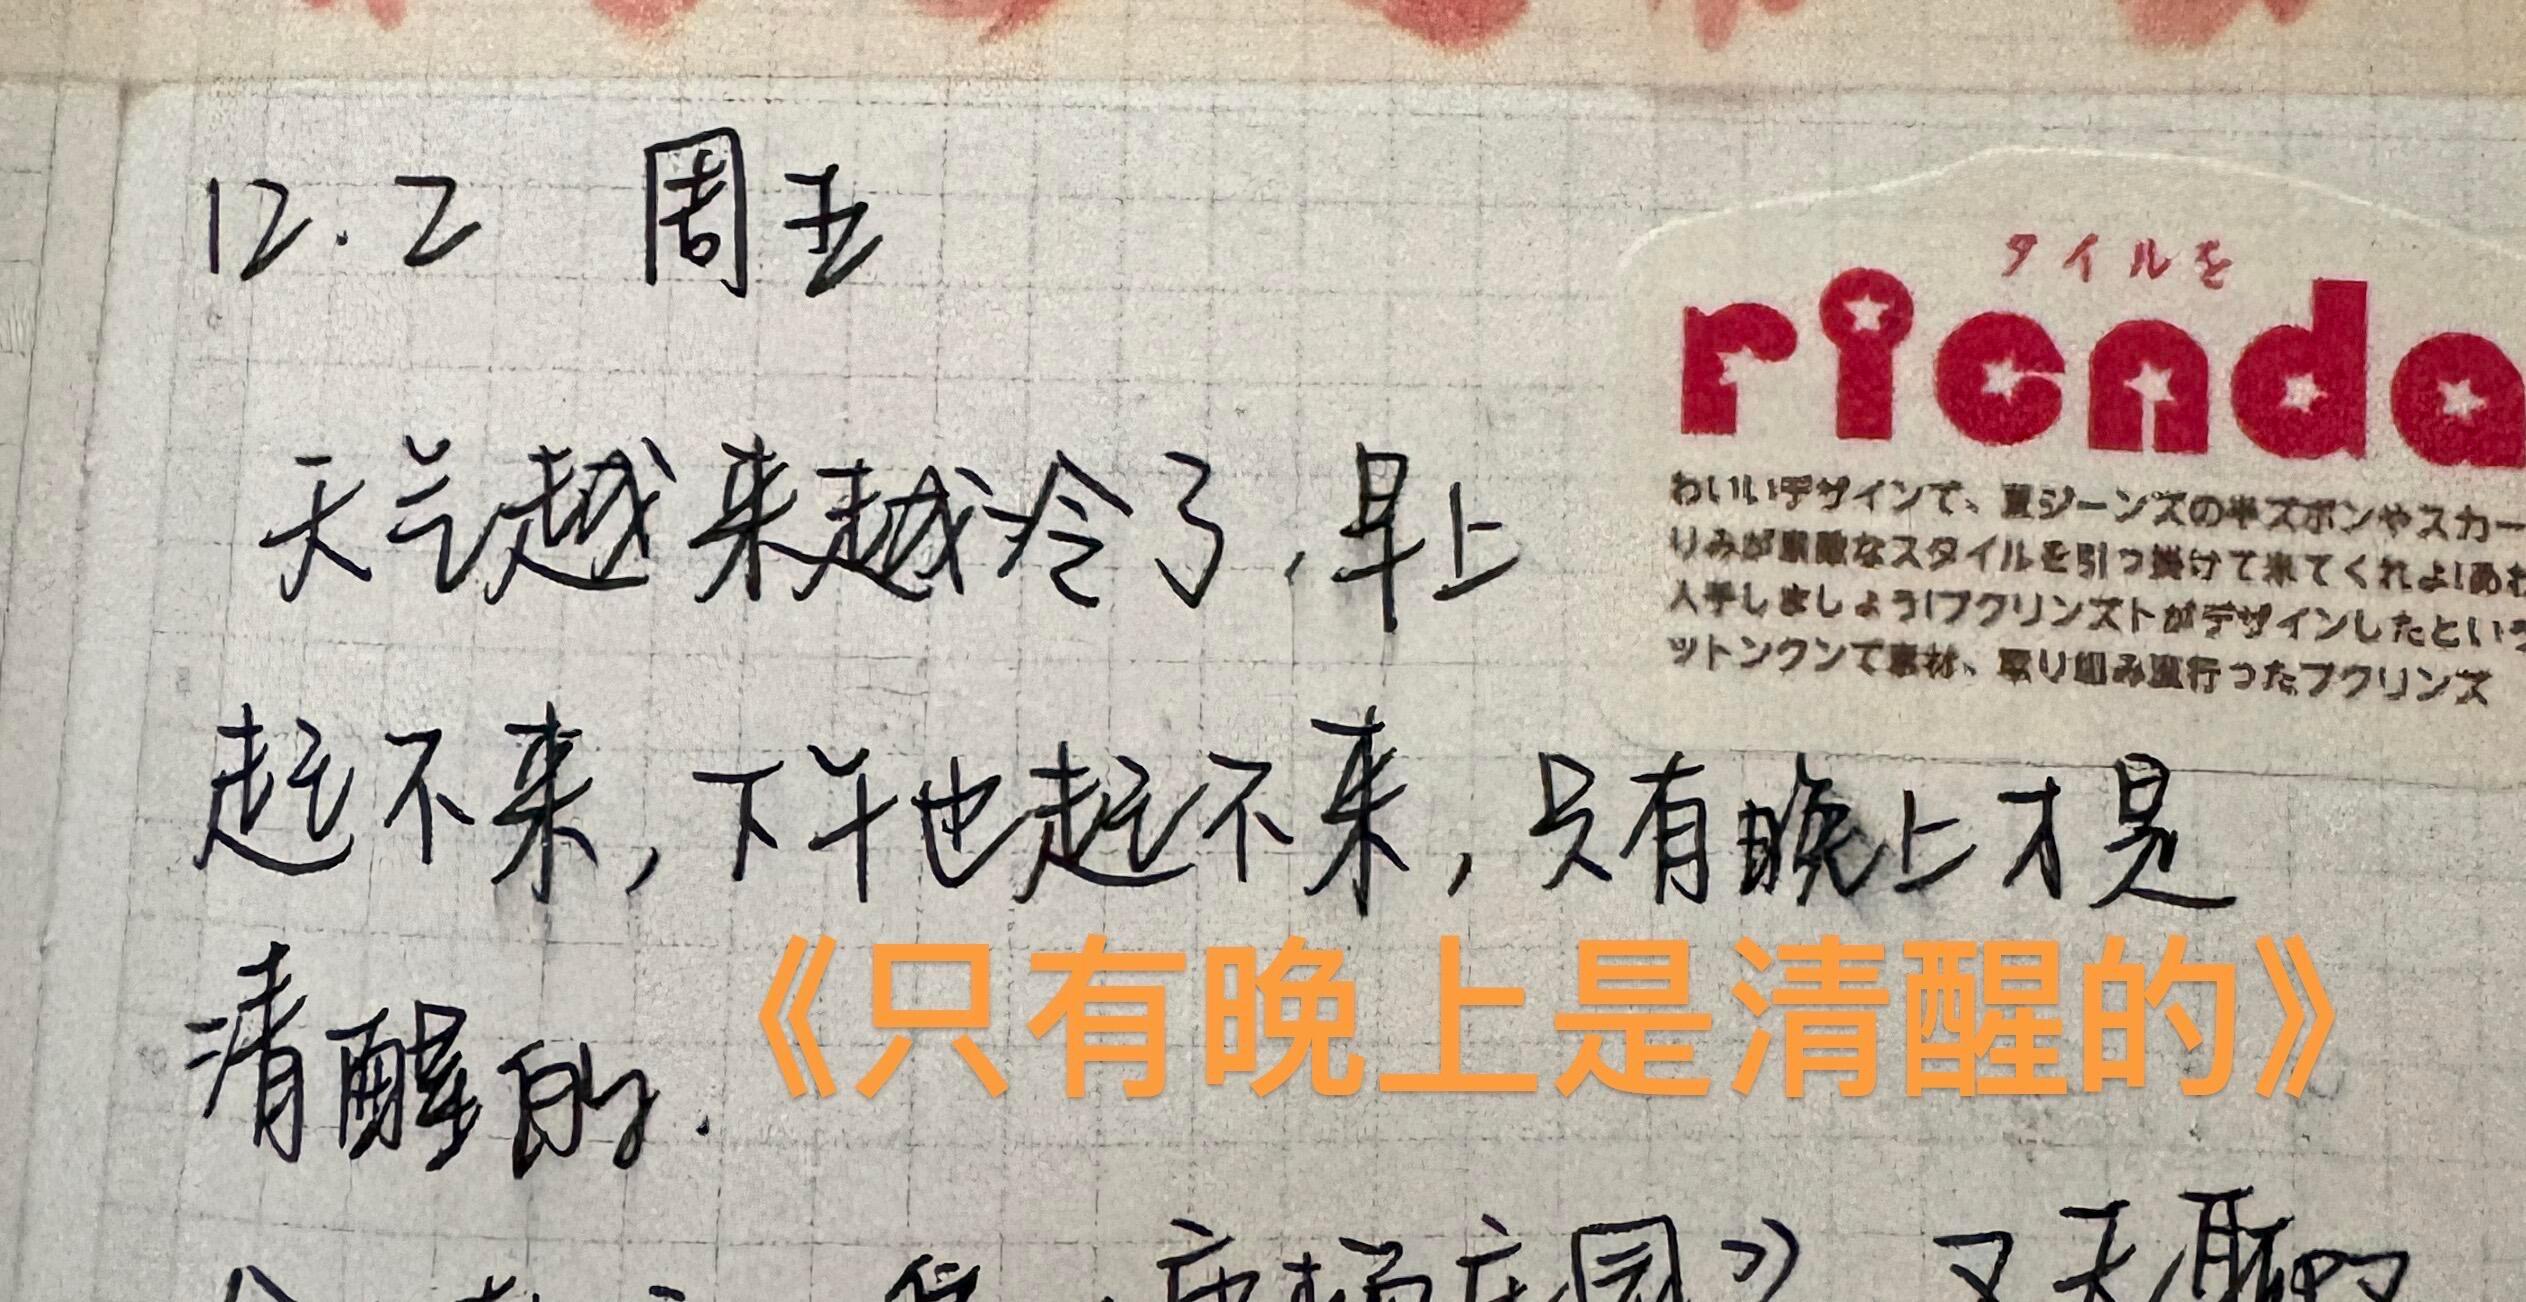 12.2 周五
タイルを
rienda
天气越来越冷了,早上
わいいデザインで、夏ジーンズの半ズボンやスカー
りみが素敵なスタイルを引っ掛けて来てくれよ!あわ
入手しましょう!プクリンストがデザインしたという
ットンクンて素材、取り組み流行ったフクリンズ
起不来,下午也起不来,只有晚上才是
清醒的.
《只有晚上是清醒的》
园》又无聊的